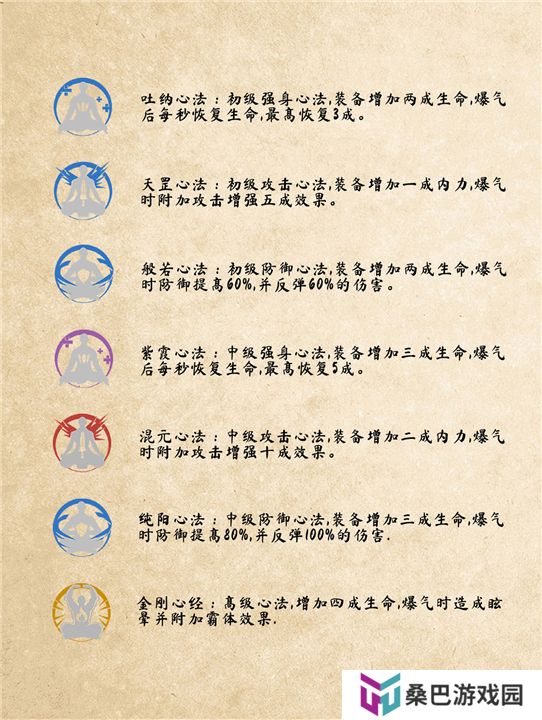 吐纳心法：初级强身心法,装备增加两成生命,爆气
后每秒恢复生命,最高恢复3成。
天罡心法：初级攻击心法,装备增加一成内力,爆气
时附加攻击增强五成效果。
般若心法：初级防御心法,装备增加两成生命,爆气
时防御提高60%,并反弹60%的伤害。
紫霞心法：中级强身心法,装备增加三成生命,爆气
后每秒恢复生命,最高恢复5成。
混元心法：中级攻击心法,装备增加二成内力,爆气
时附加攻击增强十成效果。
纯阳心法：中级防御心法,装备增加三成生命,爆气
时防御提高80%,并反弹100%的伤害.
金刚心经：高级心法,增加四成生命,爆气时造成眩
晕并附加霸体效果.
桑巴游戏园